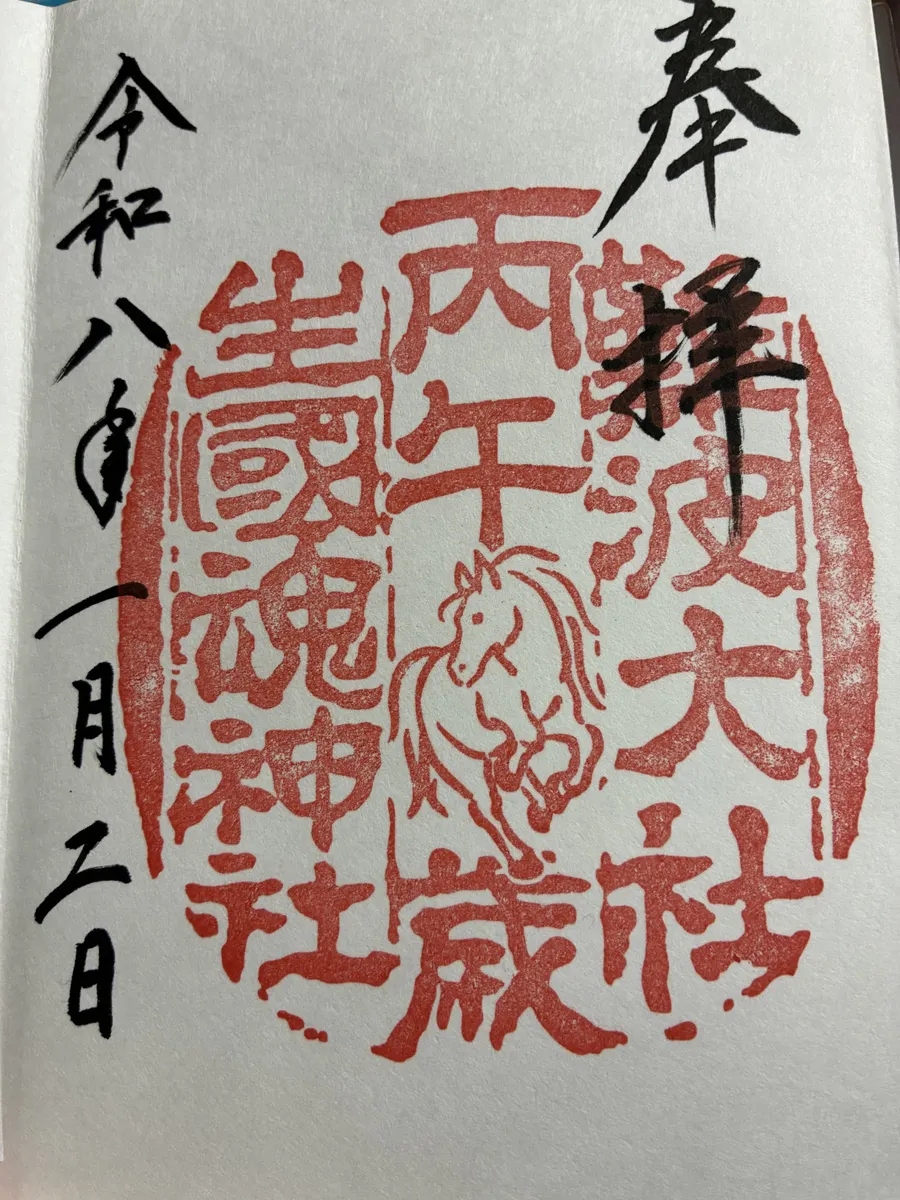 奉拝
難波大社
丙午歳
生國魂神社
令和八年一月二日